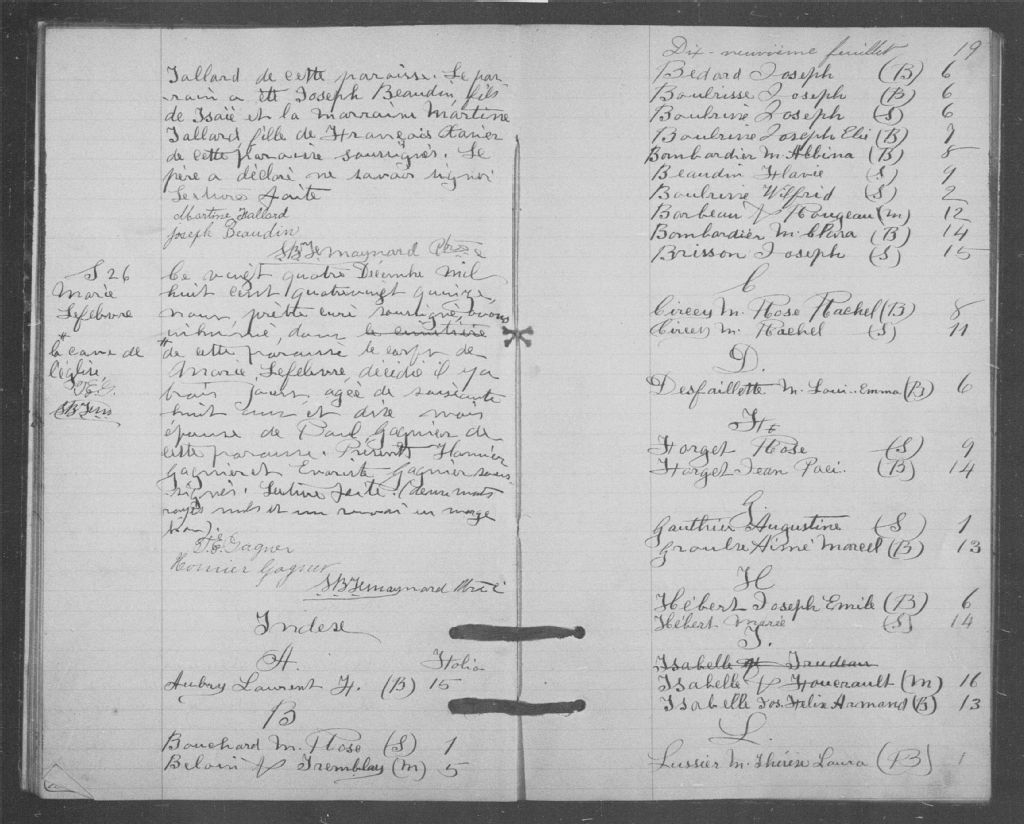 Tallard de cette paroisse. Le par-
rain a été Joseph Beaudin, fils
de Isaïe et la marraine Martine
Tallard fille de François Xavier
de cette paroisse soussignés. Le
père a déclaré ne savoir signer
Lecture faite
Martine Tallard
Joseph Beaudin
S 26
Marie
Lefebvre
la cave de
l'église
Ce vingt quatre Décembre mil
huit cent quatrevingt quinze,
nous, prêtre curé soussigné, avons
inhumé, dans le cimetière
de cette paroisse le corps de
Marie Lefebvre, décédée il y a
trois jours, agée de soixante
huit ans et dix mois
épouse de Paul Gagnier de
cette paroisse. Présents
Gagnier et Evariste Gagnier sous-
signés. Lecture faite. (deux mots
rayés nuls et un renvoi en marge
bon).
Index
A. Folio
Aubry Laurent H. (B) 15
B
Bouchard M. Rose (S) 1
Beloin & Tremblay (M) 5
Dix-neuvième feuillet 19
Bedard Joseph (B) 6
Boulrisse Joseph (B) 6
Boulrise Joseph (S) 6
Boulrise Joseph Elie (B) 7
Bombardier M. Albina (B) 8
Beaudin Flavie (S) 9
Boulrise Wilfrid (S) 2
Barbeau & Rougeau (M) 12
Bombardier M. Clara (B) 14
Brisson Joseph (S) 15
C
Circey M. Rose Rachel (B) 8
Circey M. Rachel (S) 11
D.
Desfaillette M. Loui.. Emma (B) 6
F.
Forget Rose (S) 9
Forget Jean (B) 14
G.
Gauthier Augustine (S) 1
Groulx Aimé Marcel (B) 13
H
Hébert Joseph Emile (B) 6
Hébert Marie (S) 14
I.
Isabelle & Trudeau
Isabelle & Foucrault (M) 16
Isabelle Jos. Felix Armand (B) 13
L.
Lussier M. Thérèse Laura (B) 1